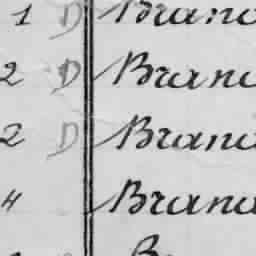 1 D Branc
2 D Branc
2 D Branc
4 Branc